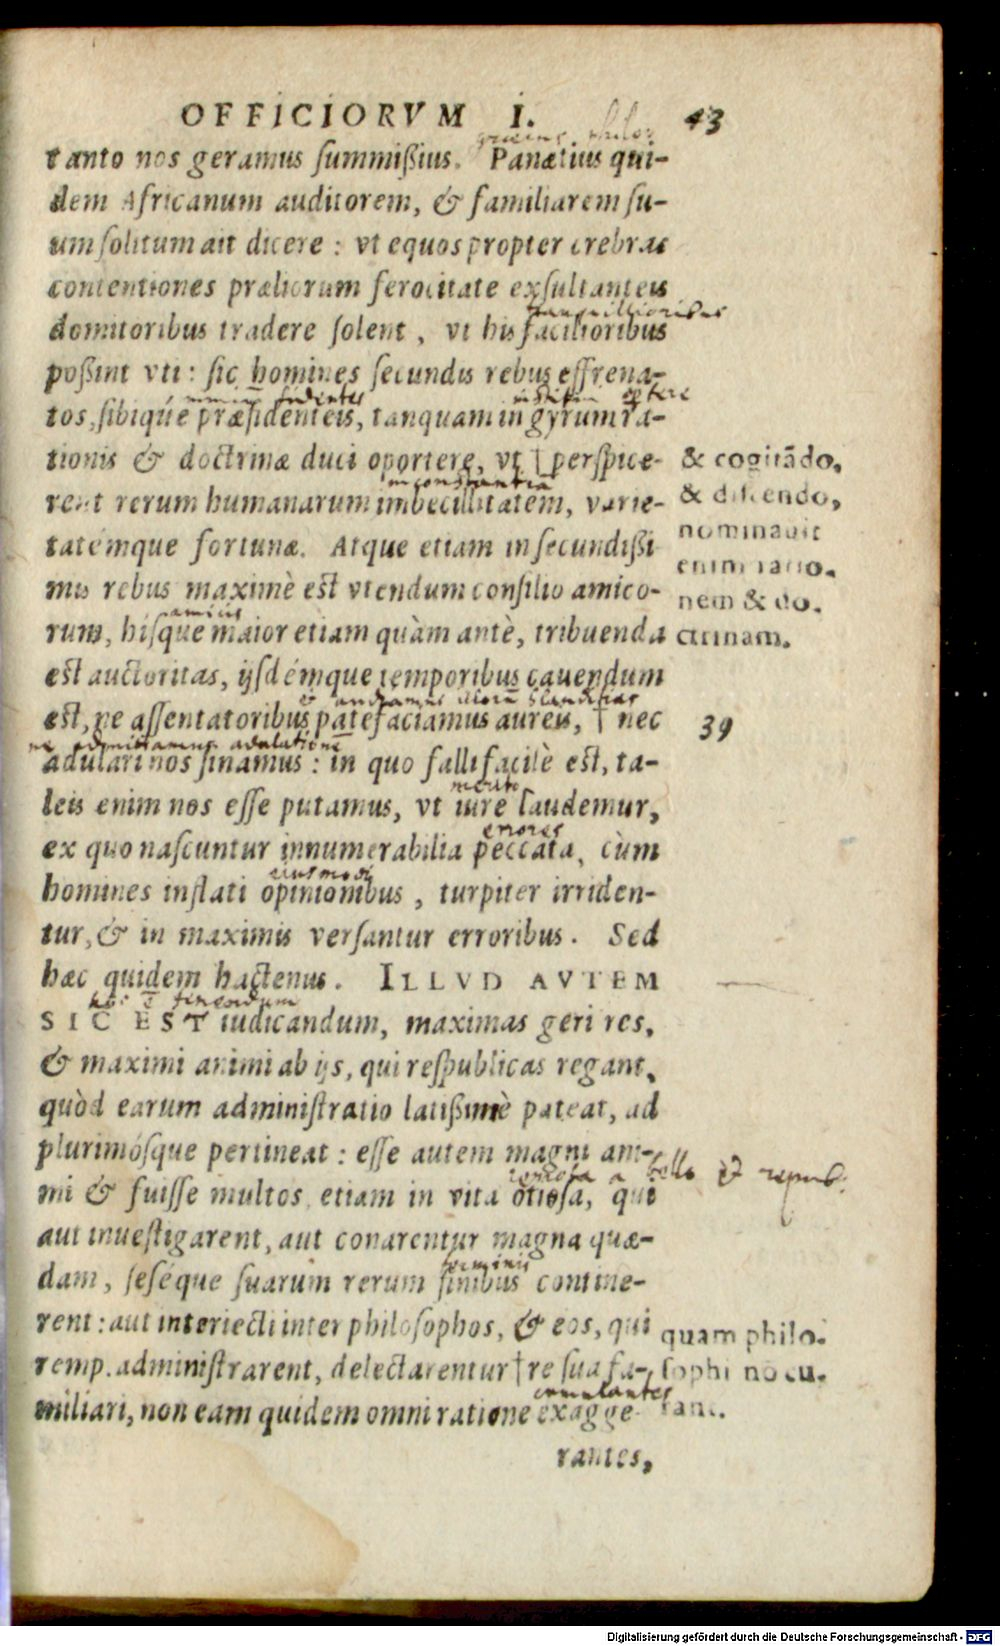 OFFICIORVM I. 43
tanto nos geramus summißius. Panætius qui-
dem Africanum auditorem, & familiarem su-
um solitum ait dicere : vt equos propter crebras
contentiones præliorum ferocitate exsultanteis
tranquillioribus
domitoribus tradere solent , vt his facilioribus
poßint vti : sic homines secundis rebus effrena-
nimium fidentes
tos, sibiq́ue præfidenteis, tanquam in gyrum ra-
tionis & doctrinæ duci oportere, vt † perspice-
& cogitādo,
inconstantiā
rent rerum humanarum imbecillitatem, varie-
& discendo,
tatémque fortunæ. Atque etiam in secundißi
nominauit
mis rebus maximè est vtendum consilio amico-
enim ratio-
nem & do-
amicis
rum, hisque maior etiam quàm antè, tribuenda
ctrinam.
est auctoritas, ijsdémque temporibus cauendum
& audiamus illorū blanditias
est, ne assentatoribus patefaciamus aureis, † nec
39
ne admittamus adulationē
adulari nos sinamus : in quo falli facilè est, ta-
merito
leis enim nos esse putamus, vt iure laudemur,
errores
ex quo nascuntur innumerabilia peccata, cùm
eiusmodi
homines inflati opinionibus , turpiter irriden-
tur, & in maximis versantur erroribus. Sed
hæc quidem hactenus. ILLVD AVTEM
SIC EST iudicandum, maximas geri res,
& maximi animi ab ijs, qui respublicas regant,
quòd earum administratio latißimè pateat, ad
plurimósque pertineat : esse autem magni ani-
remota a bello & repub.
mi & fuisse multos etiam in vita otiosa, qui
aut inuestigarent, aut conarentur magna quæ-
terminis
dam, seséque suarum rerum finibus contine-
rent : aut interiecti inter philosophos, & eos, qui
quam philo-
remp. administrarent, delectarentur † re sua fa-
sophi nō cu-
cumulantes
miliari, non eam quidem omni ratione exagge-
rant.
rantes,
Digitalisierung gefördert durch die Deutsche Forschungsgemeinschaft - DFG